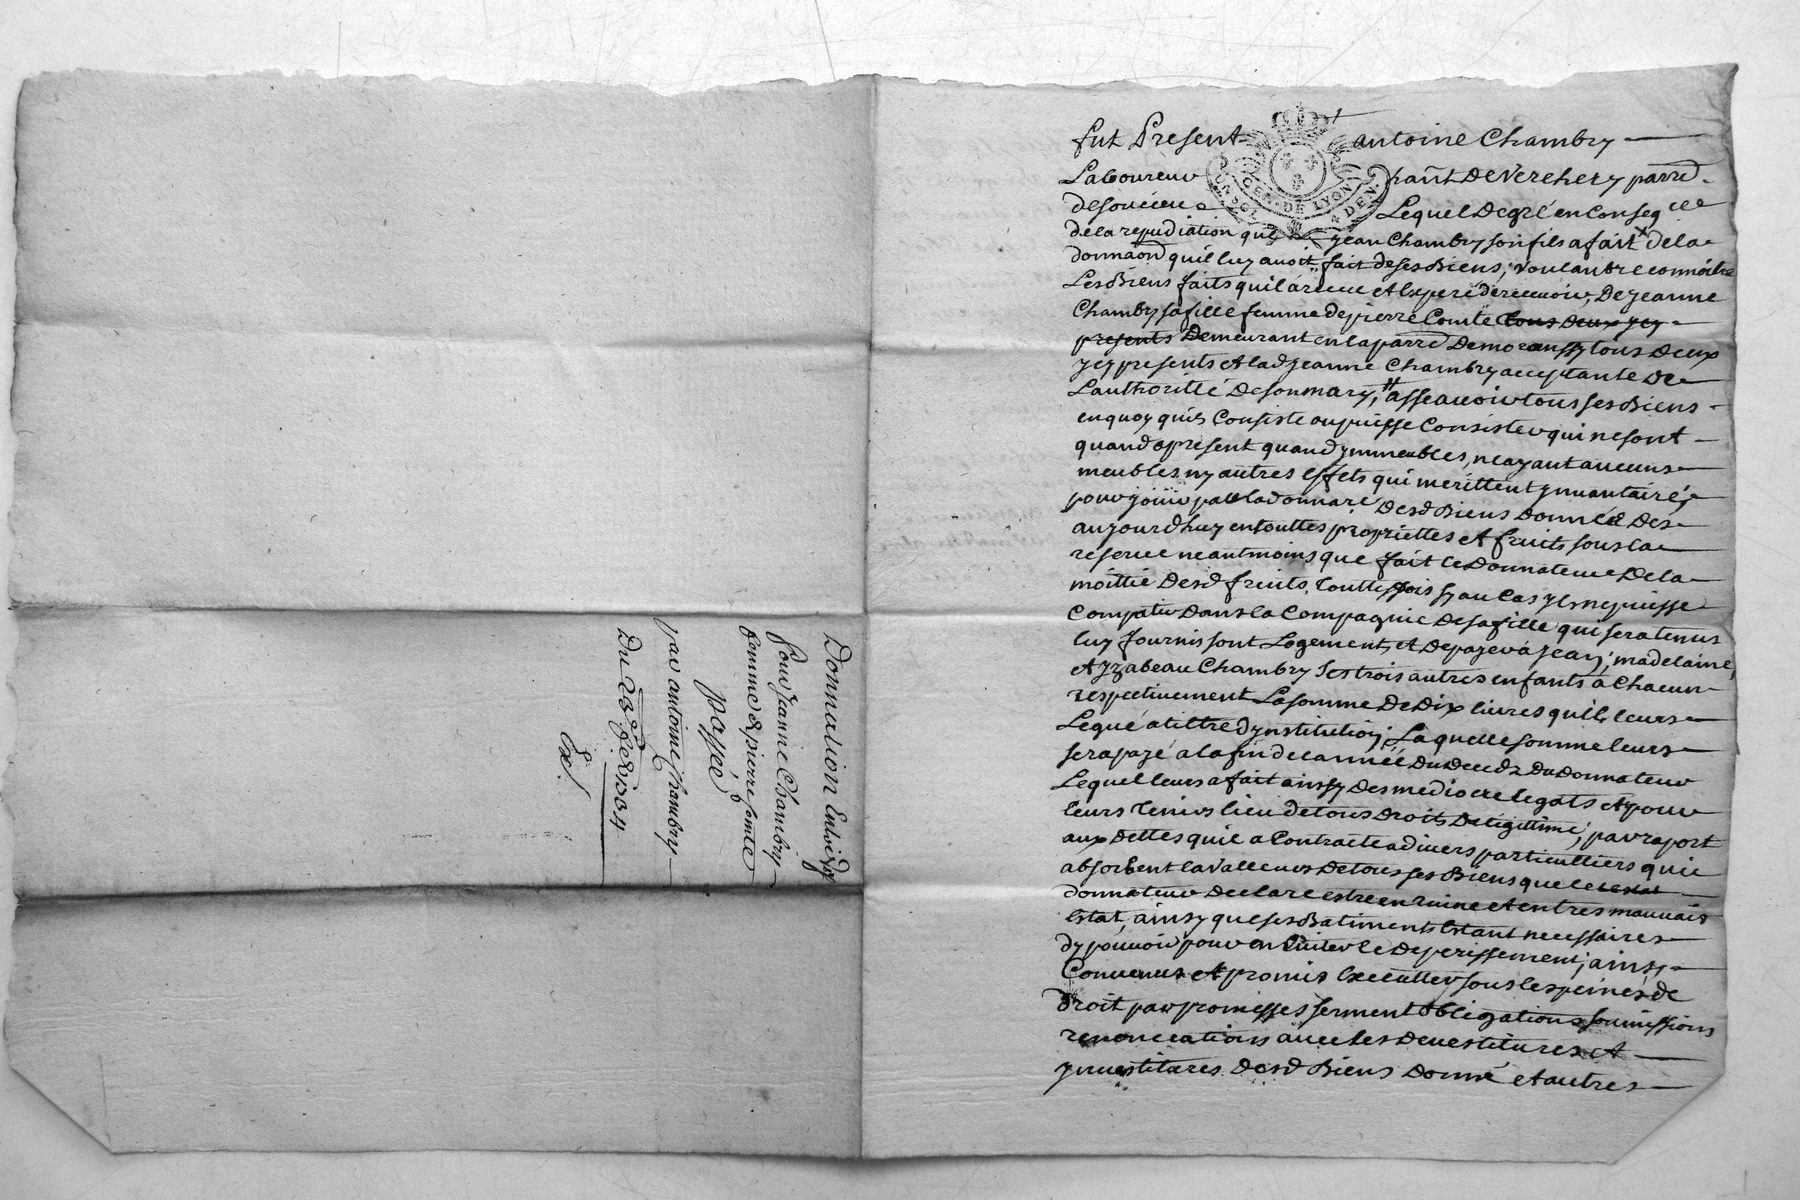 Donnation Entre vifs
Pour Jeanne Chambry
femme de pierre Comte
passée
par antoine Chambry
Du 23e fev 1704
Ex.
fut Present antoine Chambry
Laboureur hañt De Verchery parrē
de soucieu Lequel De gré en Conseqce
de la repudiation que jean Chambry son fils a fait de la
donnaon̄ qu'il luy avoit fait de ses Biens, Voulant reconnoitre
Les Biens faits qu'il a receu et Espere de recevoir, De jeanne
Chambry sa fille femme de pierre Comte tous deux jcy
presents Demeurant en la parrē De moranssy tous Deux
jcy presents et lad jeanne Chambry acceptante De
L'authoritté De son mary, # assavoir tous ses Biens
en quoy quils Consiste ou puisse Consister qui ne sont
quand apresent quand ymmeubles, n'ayant aucuns
meubles ny autres effets qui merittent ynvantaire,
pour jouir par la donnare Desd Biens Donné Des
aujourdhuy en touttes propriettes et fruits sous la
reserve neantmoins que fait le Donnateur De la
moittié Desd fruits, touttefois sy au Cas yl ne puisse
Compatir Dans la Compagnie De sa fille qui sera tenus
luy fournir sont Logement, et De payer a jean, madelaine,
et yzabeau Chambry ses trois autres enfants a Chacun
respectivement La somme De Dix livres qu'il leurs
Legue a tiltre d'ynstitution, Laquelle somme leurs
sera payé a la fin de l'année Du Deceds Du Donnateur
Lequel leurs a fait ainsy Des mediocre legats et pour
leurs tenir lieu de tous Droits De legittime, par raport
aux Dettes qu'il a Contracte a divers particulliers qui
absorbent la valleur De tous ses Biens que le
donnateur Declare estre en ruine et en tres mauvais
Estat, ainsy que ses Batiments Estant necessaires
d'y pouvoir pour en Eviter le Deperissement, ainsy
Convenus et promis Executter sous les peines de
Droit par promesses serment obligations soumissions
renonciations avec les Devestitures et
ynvestitures Desd Biens Donné et autres